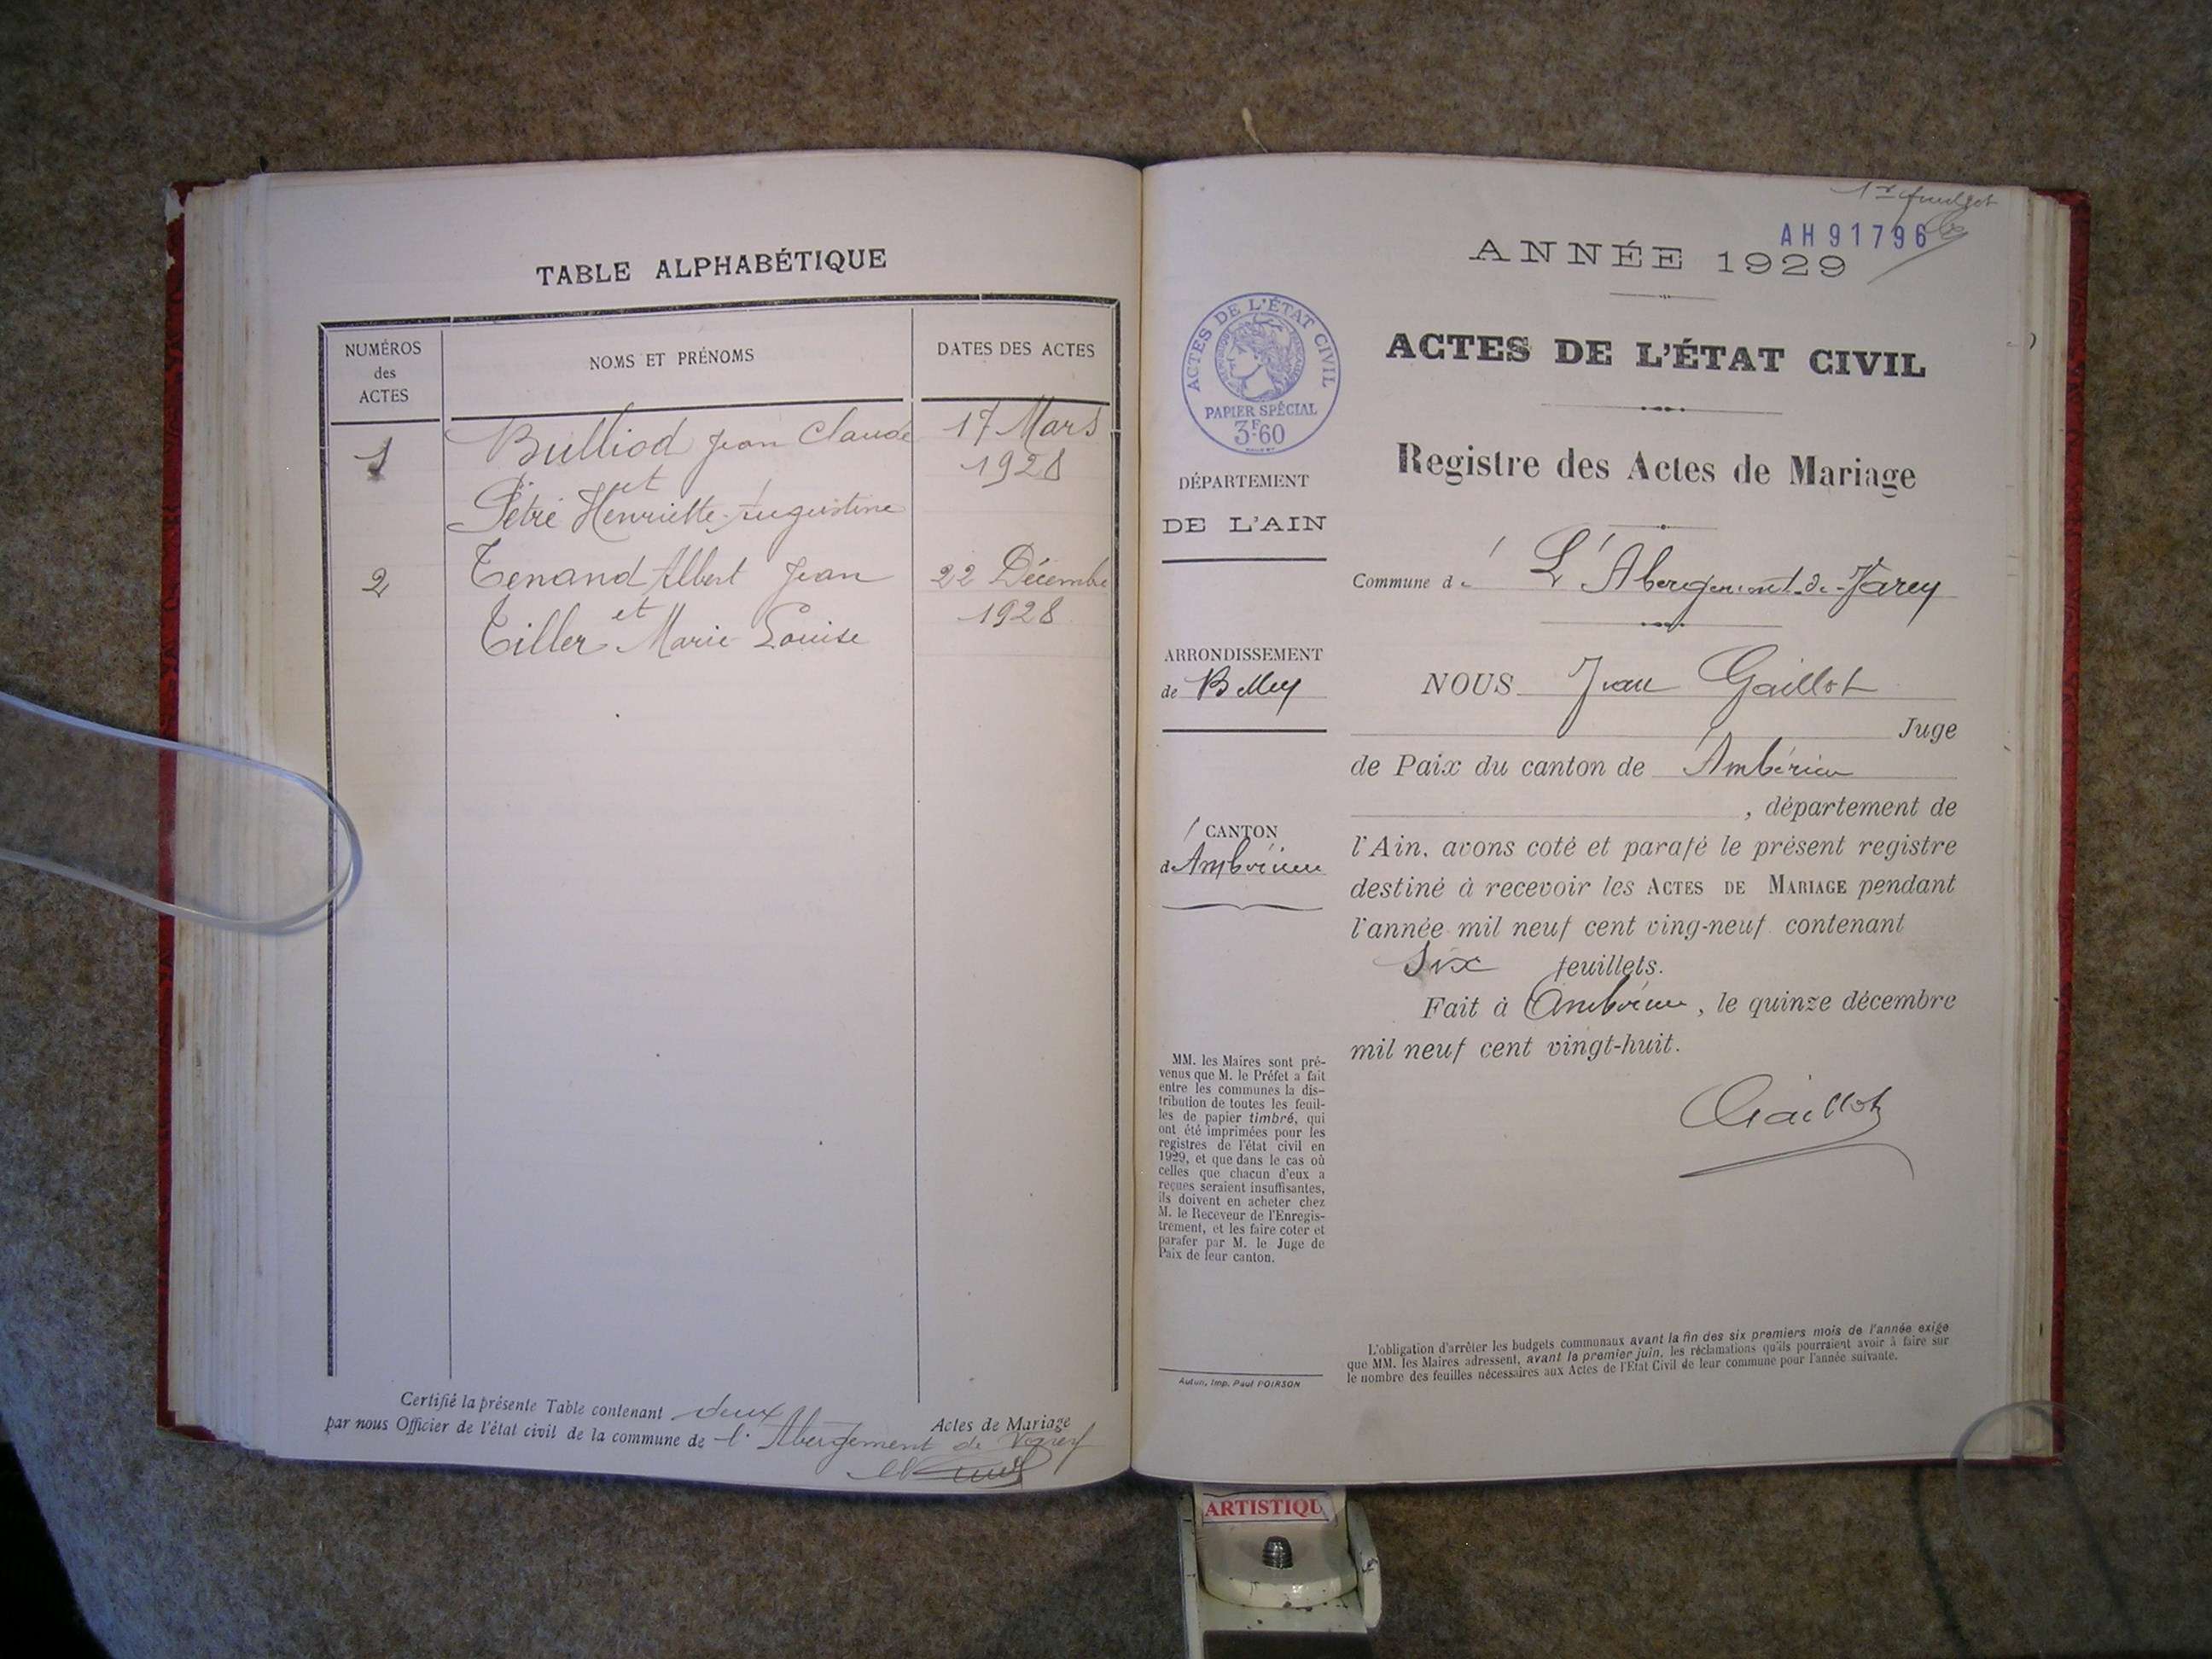 TABLE ALPHABÉTIQUE
NUMÉROS
des
ACTES
NOMS ET PRÉNOMS
DATES DES ACTES
1
Bulliod Jean Claude
17 Mars
et
1928
Pétré Henriette Augustine
2
Tenand Albert Jean
22 Décembre
et
1928
Tiller Marie Louise
Certifié la présente Table contenant deux Actes de Mariage
par nous Officier de l'état civil de la commune de l'Abergement de Varey
1er feuillet
AH 91796
ANNÉE 1929
ACTES DE L'ÉTAT CIVIL
PAPIER SPÉCIAL
3F60
ACTES DE L'ÉTAT CIVIL
Registre des Actes de Mariage
DÉPARTEMENT
DE L'AIN
ARRONDISSEMENT
de Belley
CANTON
d'Ambérieu
MM. les Maires sont pré-
venus que M. le Préfet a fait
entre les communes la dis-
tribution de toutes les feuil-
les de papier timbré, qui
ont été imprimées pour les
registres de l'état civil en
1929, et que dans le cas où
celles que chacun d'eux a
reçues seraient insuffisantes,
ils doivent en acheter chez
M. le Receveur de l'Enregis-
trement, et les faire coter et
parafer par M. le Juge de
Paix de leur canton.
Autun, Imp. Paul POIRSON
Commune de L'Abergement-de-Varey
NOUS Jean Gaillot
Juge
de Paix du canton de Ambérieu
, département de
l'Ain, avons coté et parafé le présent registre
destiné à recevoir les ACTES DE MARIAGE pendant
l'année mil neuf cent ving-neuf contenant
Six feuillets.
Fait à Ambérieu, le quinze décembre
mil neuf cent vingt-huit.
Gaillot
L'obligation d'arrêter les budgets communaux avant la fin des six premiers mois de l'année exige
que MM. les Maires adressent, avant le premier juin, les réclamations qu'ils pourraient avoir à faire sur
le nombre des feuilles nécessaires aux Actes de l'Etat Civil de leur commune pour l'année suivante.
ARTISTIQU